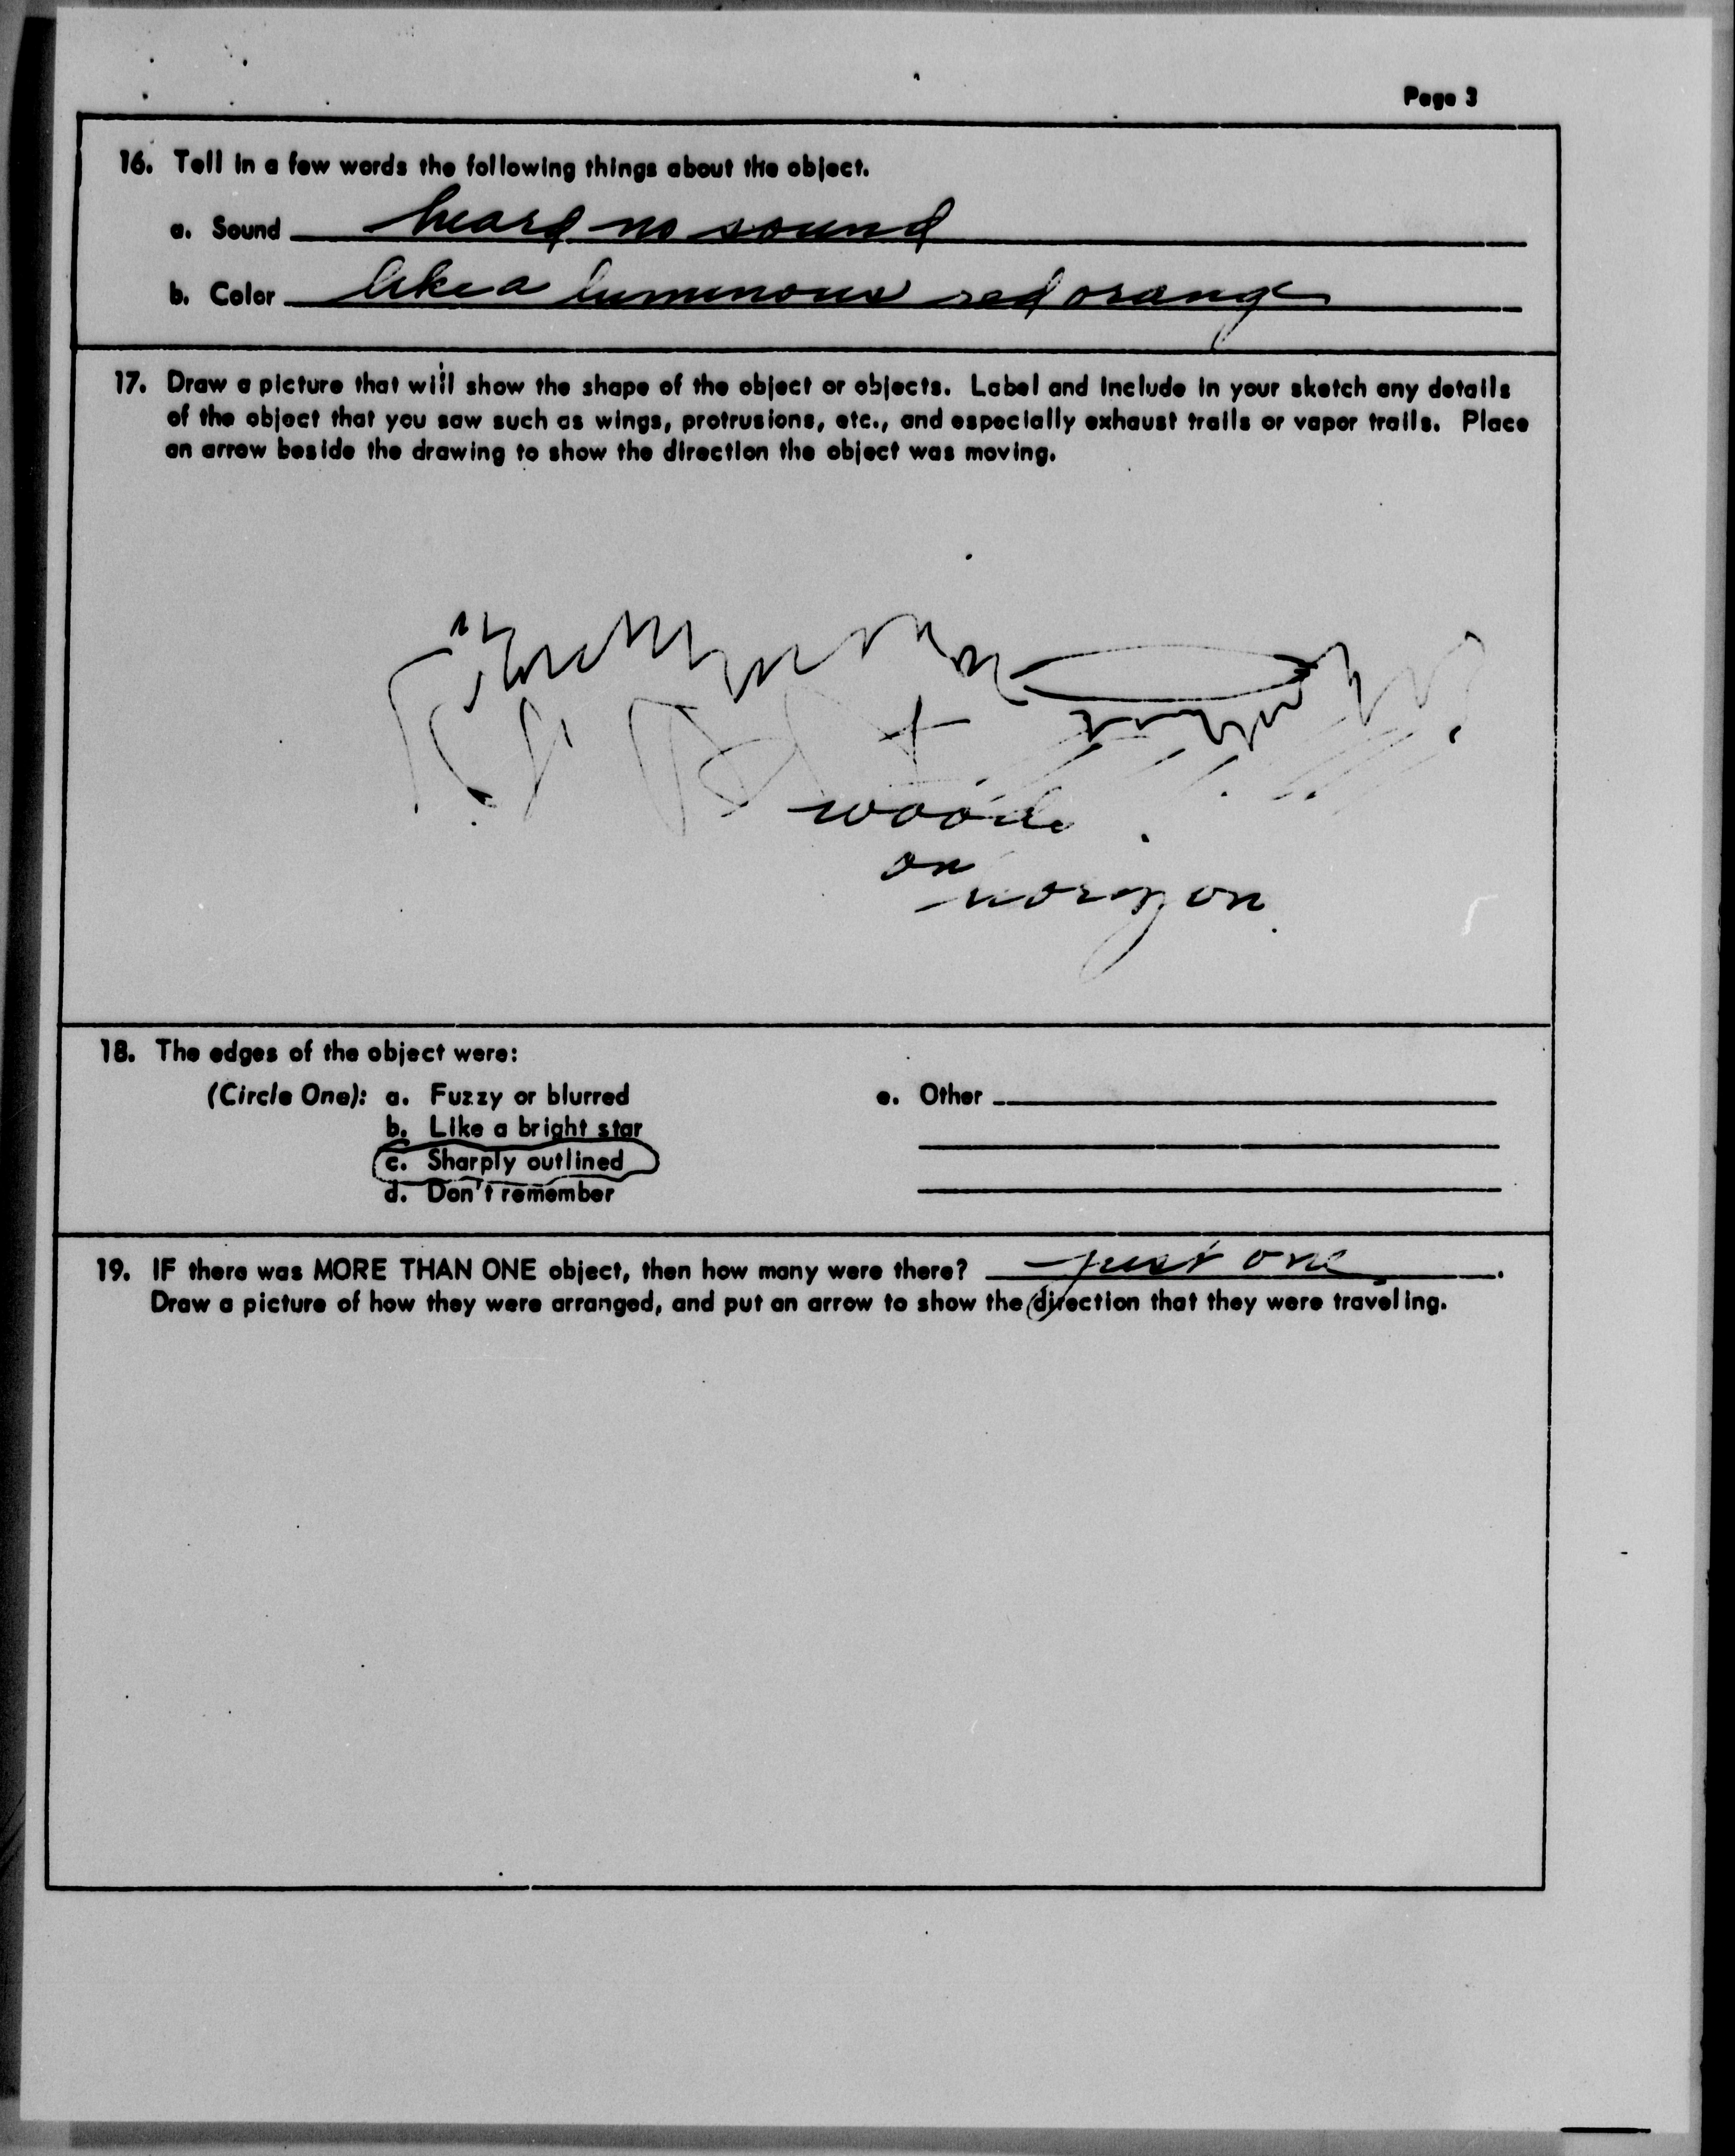 Page 3
16. Tell in a few words the following things about the object.
a. Sound heard no sound
b. Color like a luminous red orange
17. Draw a picture that will show the shape of the object or objects. Label and include in your sketch any details
of the object that you saw such as wings, protrusions, etc., and especially exhaust trails or vapor trails. Place
an arrow beside the drawing to show the direction the object was moving.
woods
on
horizon
18. The edges of the object were:
(Circle One): a. Fuzzy or blurred e. Other
b. Like a bright star
c. Sharply outlined
d. Don't remember
19. IF there was MORE THAN ONE object, then how many were there? just one.
Draw a picture of how they were arranged, and put an arrow to show the direction that they were traveling.